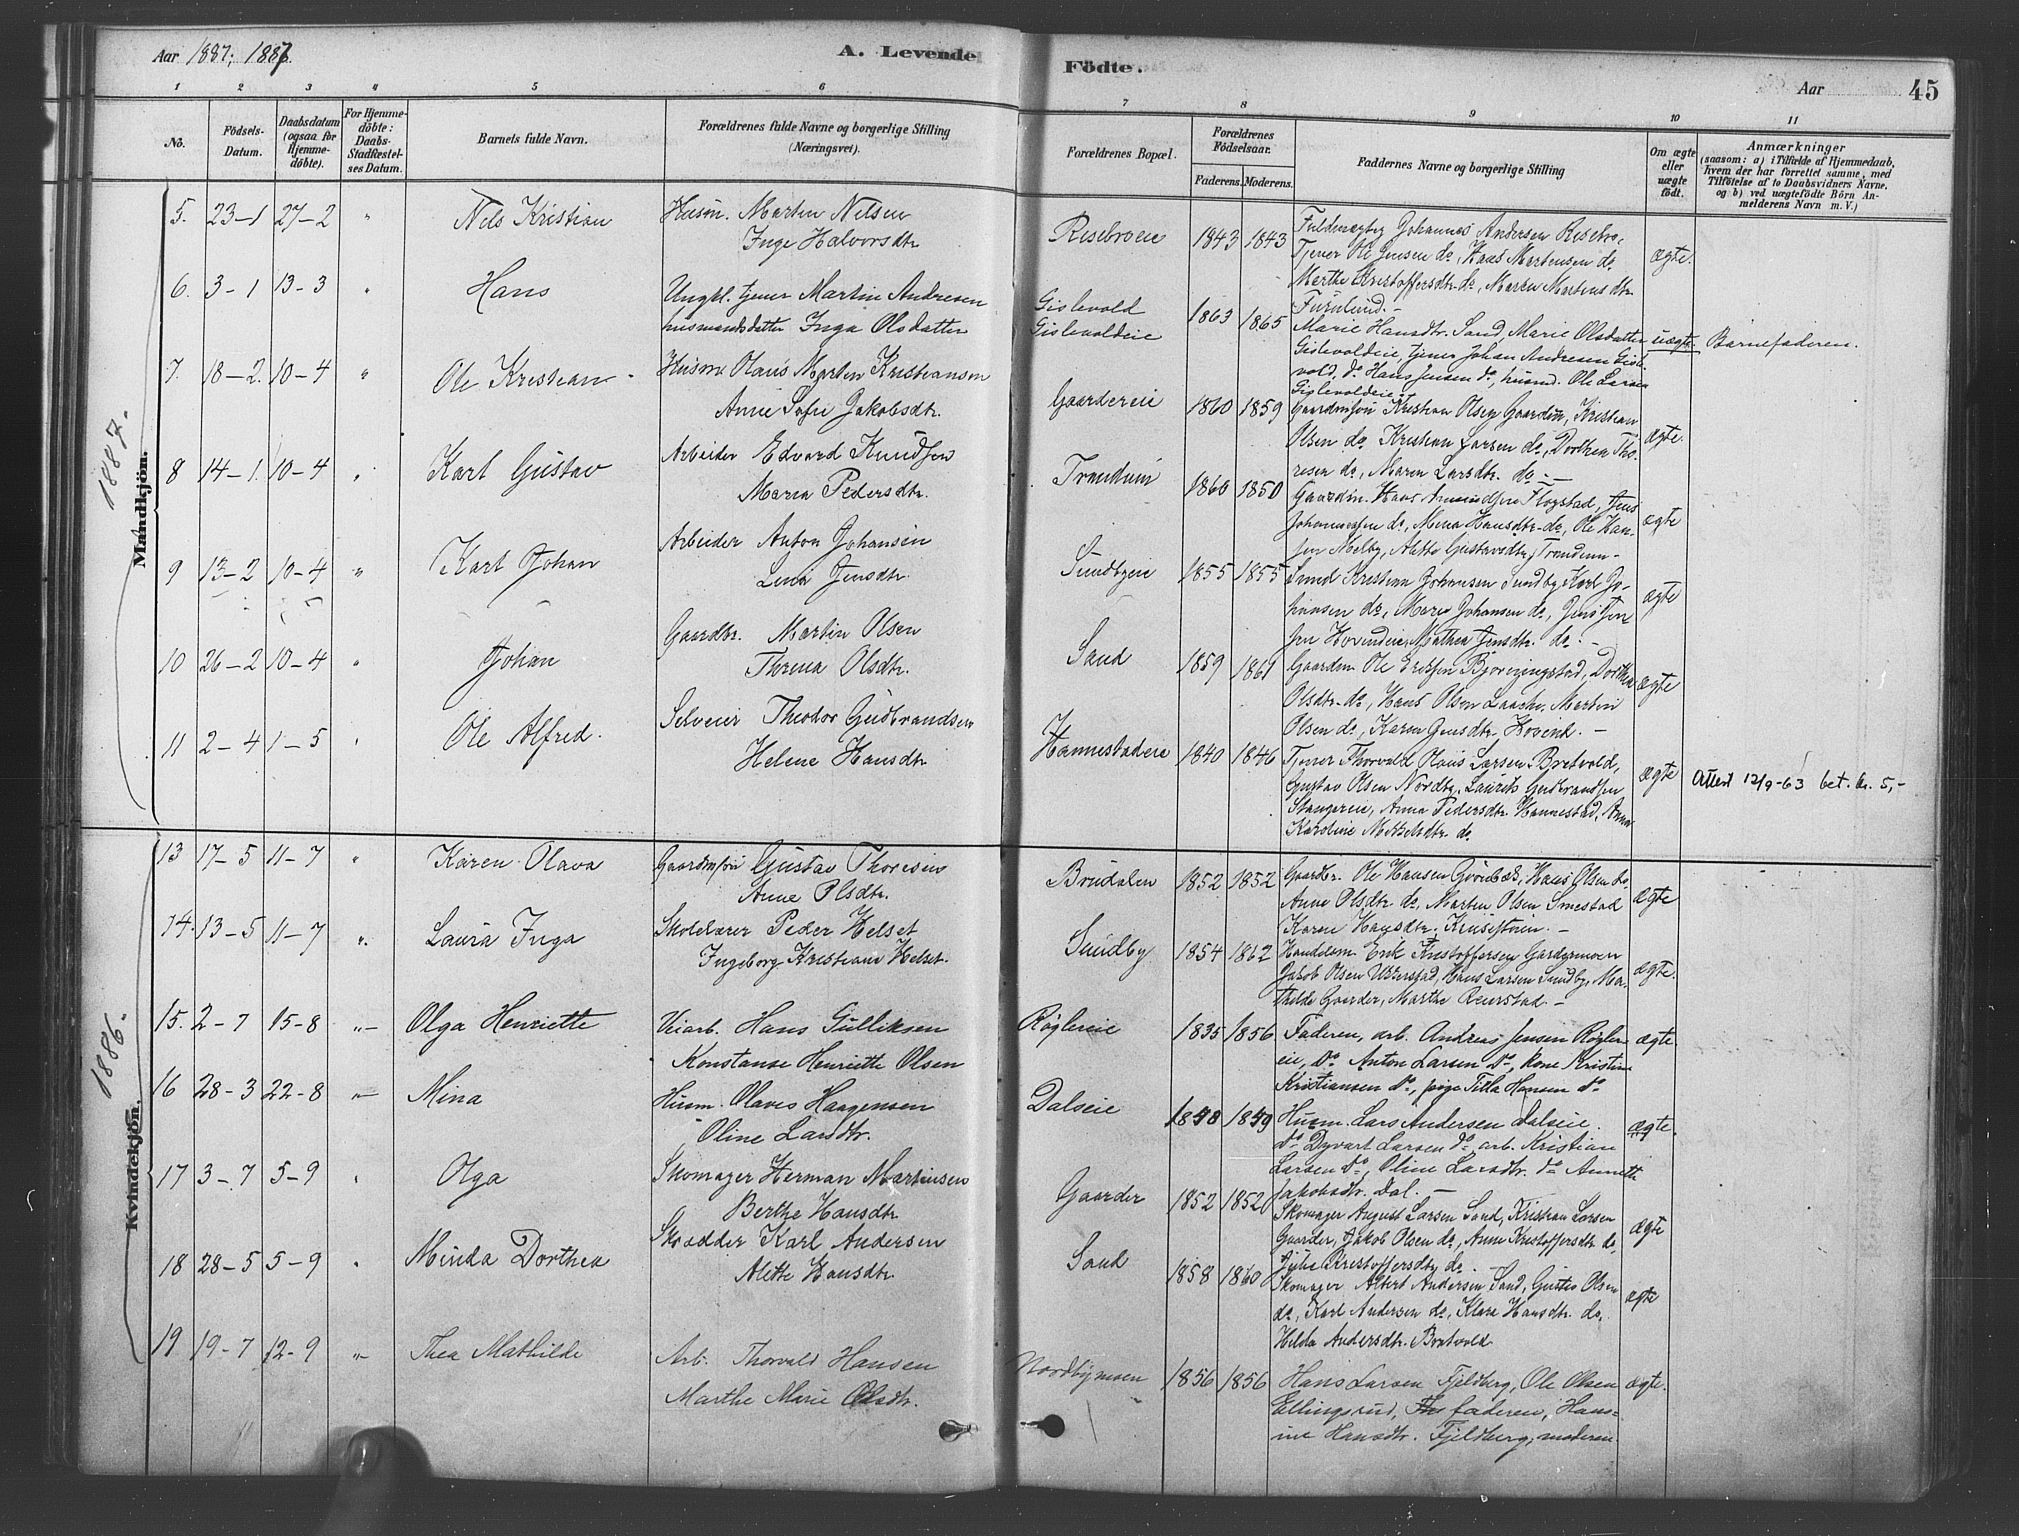 Aar 1887; 1887.
A. Levende Födte.
Aar
45
1 2 3 4 5 6 7 8 9 10 11
No.
Födsels-Datum.
Daabsdatum (ogsaa för Hjemme-döbte).
For Hjemme-döbte: Daabs-Stadfæstel-ses Datum.
Barnets fulde Navn.
Forældrenes fulde Navne og borgerlige Stilling (Næringsvei).
Forældrenes Bopæl.
Forældrenes Födselsaar.
Faderens. Moderens.
Faddernes Navne og borgerlige Stilling
Om ægte eller uægte födt.
Anmærkninger
(saasom: a) i Tilfælde af Hjemmedaab, hvem der har forrettet samme, med Tilföielse af to Daabsvidners Navne, og b) ved uægtefödte Börn An-melderens Navn m. V.)
1887.
Mandkjön.
5. 23-1 27-2 " Nils Kristian
Husm. Marten Nilsen
Inge Halvorsdtr
Risebroeie 1843 1843
Johannes Andersen Risebro,
Tjener Ole Jensen do, Hans Martensen do
Marthe Kristoffersdtr do, Maren Martensdtr
Furulund.-
ægte.
6. 3-1 13-3 " Hans
Ungkl. tjener Martin Andresen
husmandsdatter Inga Olsdatter
Gislevold
Gislevoldeie
1863 1865
Marie Hansdtr. Sand, Marie Olsdatter
Gislevoldeie, tjener Johan Andresen Gisle-
vold, do Hans Jensen do, husmd. Ole Larsen
Gislevoldeie
uægte. Barnefaderen.
7. 18-2. 10-4 " Ole Kristian
Husm Olaus Martin Kristiansen
Anne Sofie Jakobsdtr.
Gaardereie 1860 1859
Kristian Olsen Gaarder, Kristian
Olsen do, Kristian Larsen do, Dorthea Tho-
resen do, Maren Larsdtr. do -
ægte.
8 14-1. 10-4 " Karl Gustav
Arbeider Edvard Knudsen
Maria Pedersdtr.
Trandum 1860 1850
Gaardm. Hans Amundsen Flogstad, Jens
Johannessen do, Mina Hansdtr do, Ole Han-
sen Melby, Alette Trandum -
ægte
9 13-2 10-4 " Karl Johan
Arbeider Anton Johansen
Lina Jensdtr.
Sundbyeie 1855 1855
Smed Kristian Johansen Sundby, Karl Jo-
hansen do, Maria Johansen do, Jens Jen-
sen Hovindeie, Mathea Jensdtr. do. -
ægte
10 26-2 10-4 " Johan
Gaardbr. Martin Olsen
Threna Olsdtr.
Sand 1859 1861
Gaardm Ole Eriksen, Dorthea
Olsdtr. do, Hans Olsen Laache, Martin
Olsen do, Karen Jensdtr. Hovind. -
ægte
11 2-4 1-5 " Ole Alfred.
Selveier Theodor Gudbrandsen
Helene Hansdtr
Hannestadeie 1840 1846
Tjener Thorvald Olaus Larsen Bretvold,
Gustav Olsen Nordby, Laurits Gudbrandsen
Stangereie, Anna Pedersdtr. Hannestad, Anna
Karoline do
ægte Attest 12/9-63 bet. kr. 5,-
1886.
Kvindekjön.
13 17-5 11-7 " Karen Olava
Gaardm Gustav Thoresen
Anne Olsdtr.
Brudalen 1852 1852
Gaardbr. Ole Hansen, Hans Olsen do,
Anne Olsdtr. do, Martin Olsen Smestad
Karen Hansdtr. -
ægte
14. 13-5 11-7 " Laura Inga
Skolelærer Peder Helset
Ingeborg Kristiane Helset.
Sundby 1854 1862
Handelsm. Erik Kristoffersen Gardermoen
Jakob Olsen Ukkestad, Hans Larsen Sundby, Ma-
thilde Gaarder, Marthe Reierstad. -
ægte.
15. 2-7 15-8 " Olga Henriette
Veiarb. Hans Gulliksen
Konstanse Henriette Olsen
Røglereie 1835 1856
Faderen, arb. Andreas Jensen Røgler-
eie, do Anton Larsen do, kone Kristine
Kristiansen do, pige Tilla Hansen do
ægte.
16 28-3 22-8 " Mina
Husm. Olaves Haagensen
Oline Larsdtr.
Dalseie 1859
Husm. Lars Andersen Dalseie.
do Dyvart Larsen do. arb. Kristian
Larsen do, Oline Larsdtr. do Annette
Jakobsdtr. Dal. -
ægte.
17 3-7 5-9 " Olga
Skomager Herman Martinsen
Berthe Hansdtr
Gaarder 1852 1852
Skomager August Larsen Sand, Kristian Larsen
Gaarder, Jakob Olsen do, Anne Kristoffersdtr do,
Julie Kristoffersdtr do. -
ægte
18 28-5 5-9 " Minda Dorthea
Skrædder Karl Andersen
Alette Hansdtr
Sand 1858 1860
Skomager Albert Andersen Sand, Olsen
do, Karl Andersen do, Klara Hansdtr. do.
Hilda Andersdtr. Bretvold
ægte
19 19-7 12-9 " Thea Mathilde
Arb. Thorvald Hansen
Marthe Marie Olsdtr.
Nordbymoen 1856 1856
Hans Larsen Fjeldberg, Ole Olsen
Ellingsrud, faderen, Hans-
ine Hansdtr. Fjeldberg, moderen
ægte.